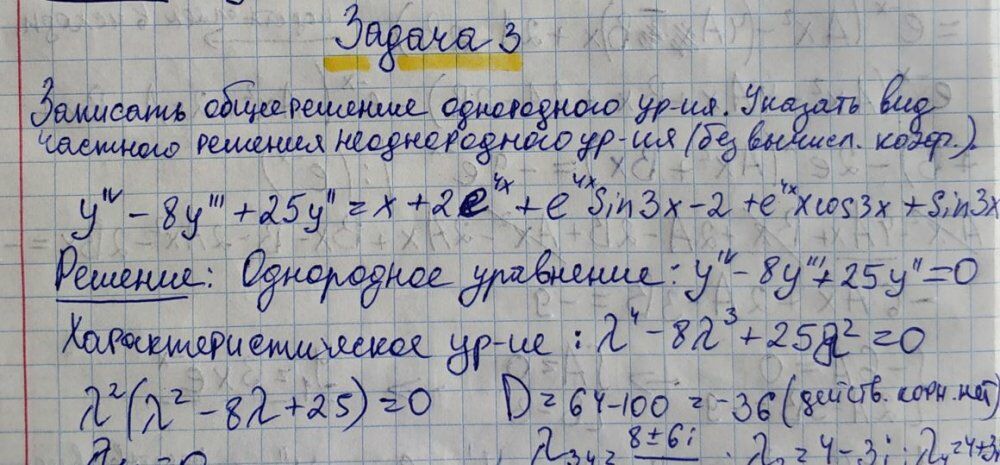 Задача 3
Записать общее решение однородного ур-ия. Указать вид
частного решения неоднородного ур-ия (без вычисл. коэф.).
yᴵⱽ - 8y''' + 25y'' = x + 2e⁴ˣ + e⁴ˣ sin3x - 2 + e⁴ˣ x cos3x + sin3x
Решение: Однородное уравнение: yᴵⱽ - 8y''' + 25y'' = 0
Характеристическое ур-ие: λ⁴ - 8λ³ + 25λ² = 0
λ²(λ² - 8λ + 25) = 0 D = 64 - 100 = -36 (действ. корн. нет)
= 0 λ₃,₄ = 8 ± 6i ; = 4 - 3i ; = 4 + 3